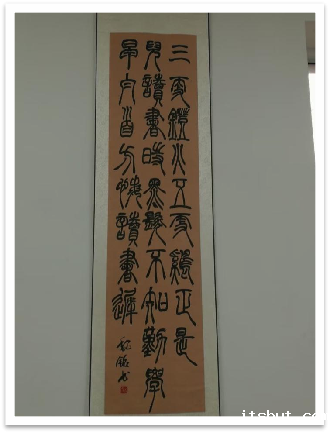 三更鐙火五更雞正是
男兒讀書時黑髮不知勤學
早白首方悔讀書遲
itsbut.co